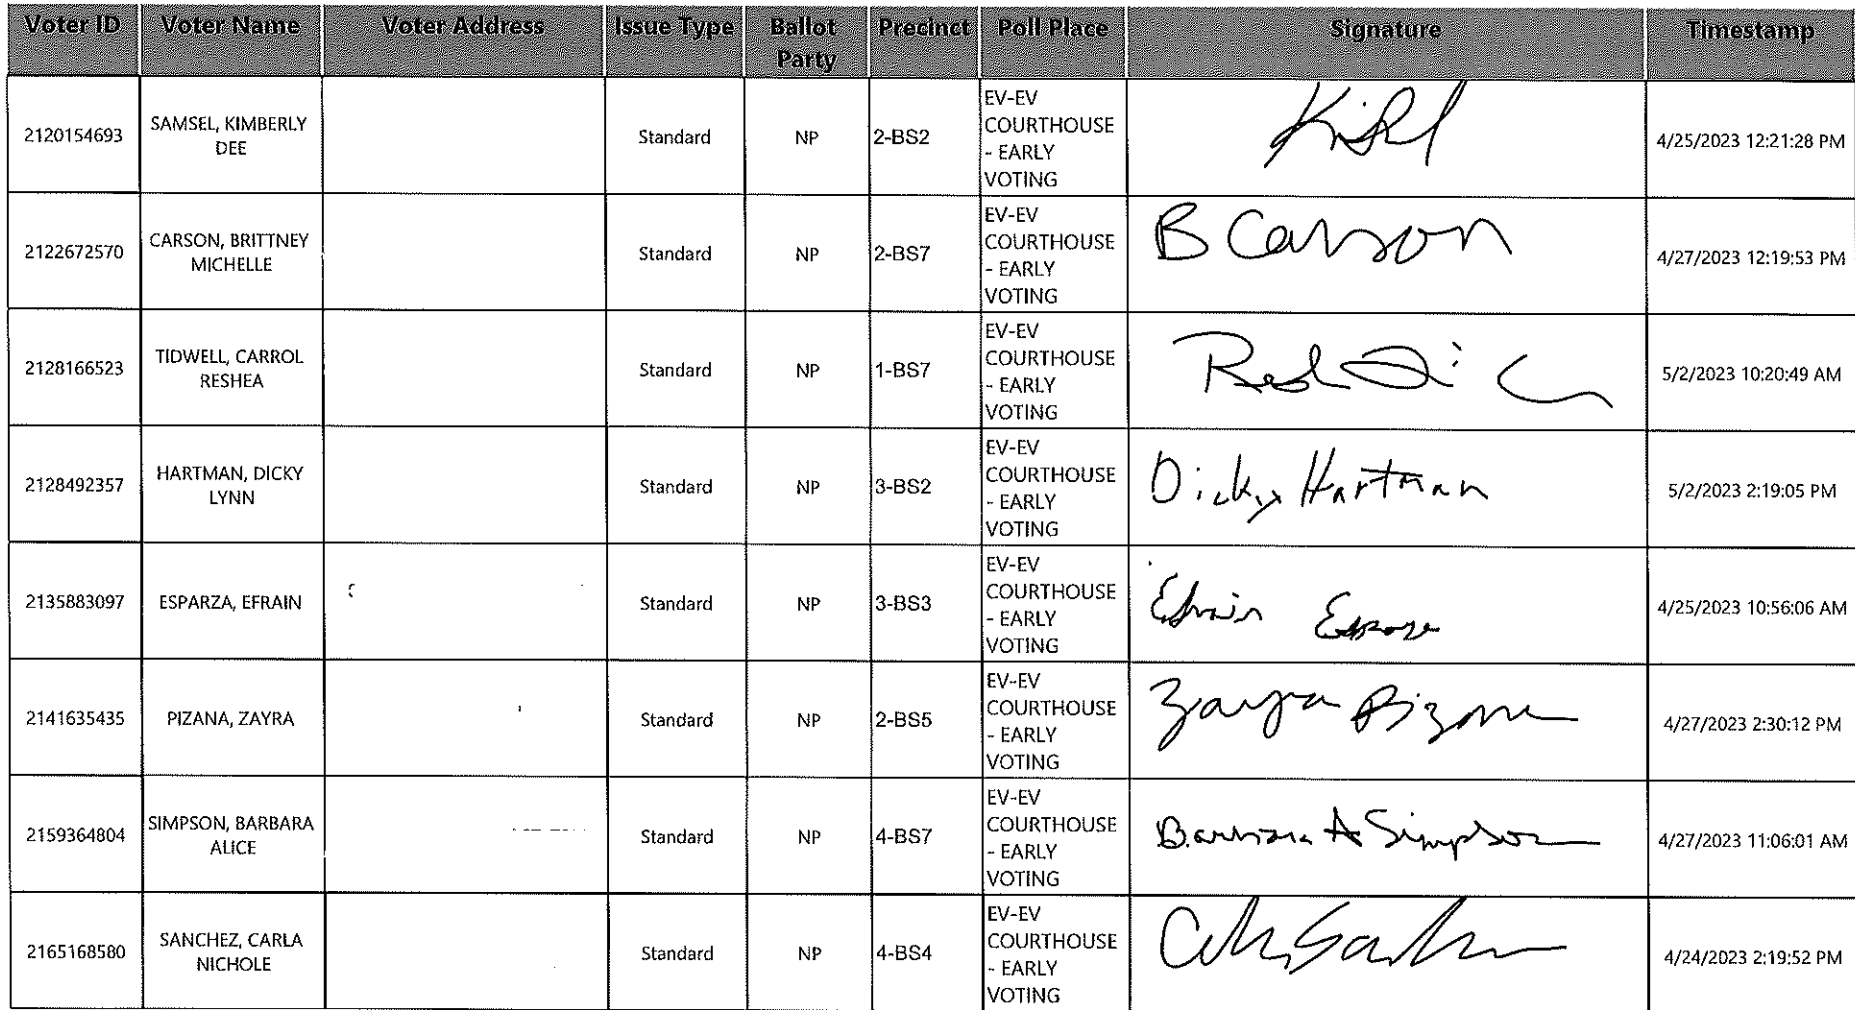 Voter ID Voter Name Voter Address Issue Type Ballot Party Precinct Poll Place Signature Timestamp
2120154693 SAMSEL, KIMBERLY DEE Standard NP 2-BS2 EV-EV COURTHOUSE - EARLY VOTING 4/25/2023 12:21:28 PM
2122672570 CARSON, BRITTNEY MICHELLE Standard NP 2-BS7 EV-EV COURTHOUSE - EARLY VOTING B Carson 4/27/2023 12:19:53 PM
2128166523 TIDWELL, CARROL RESHEA Standard NP 1-BS7 EV-EV COURTHOUSE - EARLY VOTING 5/2/2023 10:20:49 AM
2128492357 HARTMAN, DICKY LYNN Standard NP 3-BS2 EV-EV COURTHOUSE - EARLY VOTING Dicky Hartman 5/2/2023 2:19:05 PM
2135883097 ESPARZA, EFRAIN Standard NP 3-BS3 EV-EV COURTHOUSE - EARLY VOTING Efrain 4/25/2023 10:56:06 AM
2141635435 PIZANA, ZAYRA Standard NP 2-BS5 EV-EV COURTHOUSE - EARLY VOTING Zayra Pizana 4/27/2023 2:30:12 PM
2159364804 SIMPSON, BARBARA ALICE Standard NP 4-BS7 EV-EV COURTHOUSE - EARLY VOTING Barbara A Simpson 4/27/2023 11:06:01 AM
2165168580 SANCHEZ, CARLA NICHOLE Standard NP 4-BS4 EV-EV COURTHOUSE - EARLY VOTING 4/24/2023 2:19:52 PM